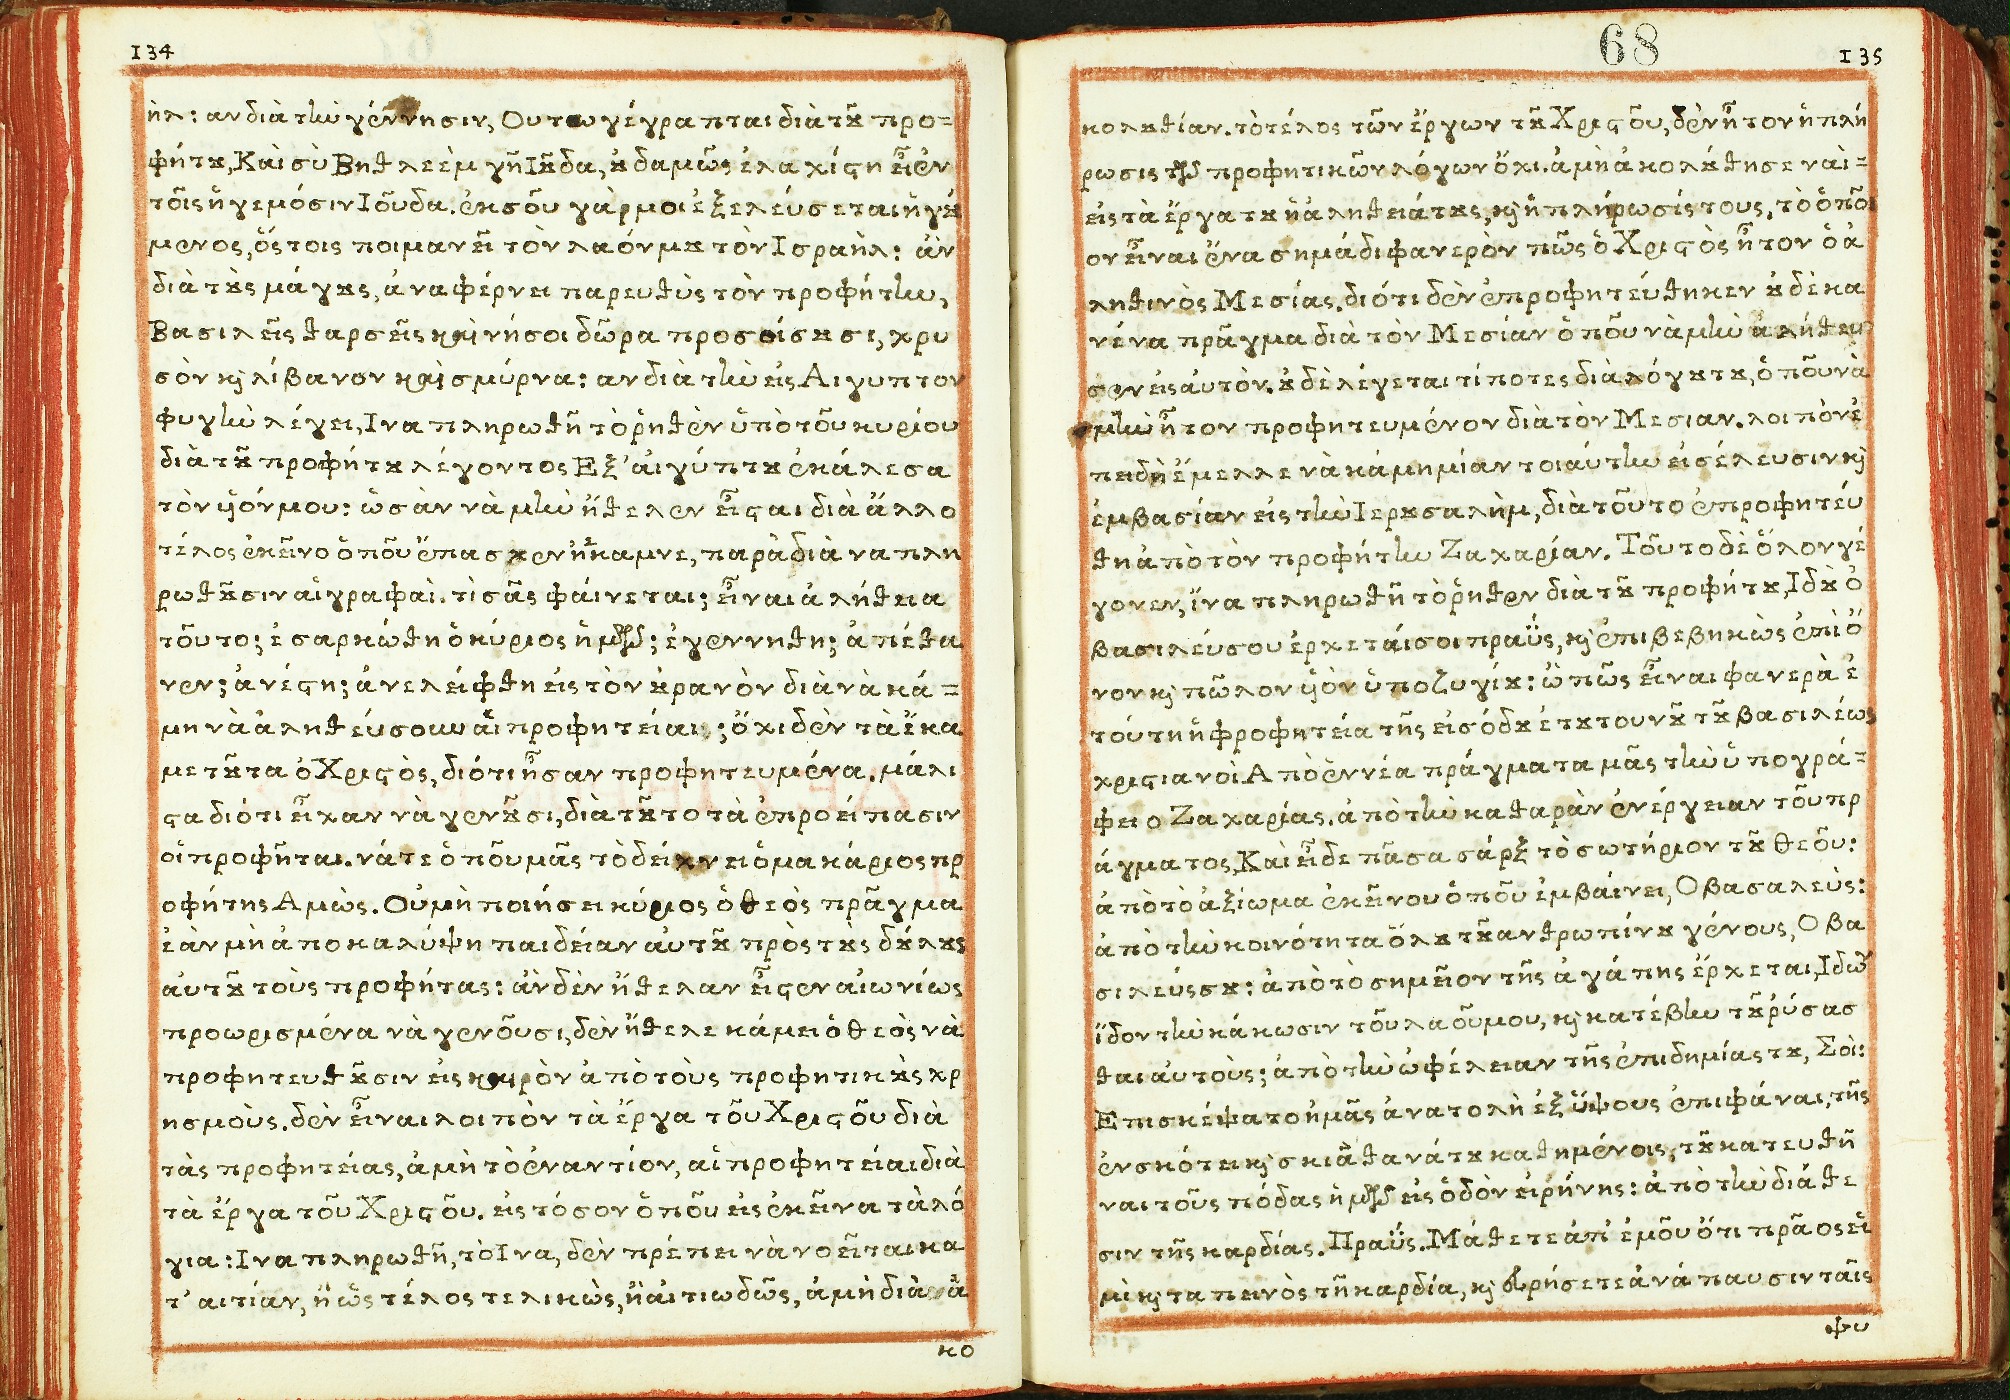 134
ὴλ: αν διὰ τὴν γέννησιν, Ουτω γέγραπται διὰ τȣ͂ προ=
φήτȣ, Καὶ σὺ Βηθλεὲμ γῆ Ιȣ́δα, ȣ̓δαμῶς ἐλαχίςη εἶ ἐν
τοῖς ἡγεμόσιν Ιοῦδα. ἐκ σοῦ γὰρ μοι ἐξελεύσεται ἡγȣ́
μενος, ὅςτοις ποιμανεῖ τὸν λαόν μȣ τὸν Ισραὴλ: ἀν
διὰ τȣ̀ς μάγȣς, ἀναφέρνει παρευθὺς τὸν προφήτην,
Βασιλεῖς θαρσεῖς καὶ νήσοι δῶρα προσοίσȣσι, χρυ
σὸν κ̀ λίβανον καὶ σμύρνα: αν διὰ τὴν εἰς Αιγυπτον
φυγὴν λέγει, Ινα πληρωθῆ τὸ ῥηθὲν ὑπὸ τοῦ κυρίου
διὰ τȣ͂ προφήτȣ λέγοντος Εξ' ἀιγύπτȣ ἐκάλεσα
τὸν ὑόν μου: ὡσὰν νὰ μὴν ἤθελεν εἶςαι διὰ ἄλλο
τέλος ἐκεῖνο ὁποῦ ἔπασχεν ἢ ἔκαμνε, παρὰ διὰ να πλη
ρωθȣ͂σιν αἱ γραφαὶ. τὶ σᾶς φάινεται; εἶναι ἀλήθεια
τοῦτο; ἐσαρκώθη ὁ κύριος ἡμῶν; ἐγεννήθη; ἀπέθα
νεν; ἀνέςη; ἀνελείφθη εἰς τὸν ȣ̓ρανὸν διὰ νὰ κά=
μη νὰ ἀληθεύσουν αἱ προφητείαι; ὄχι δὲν τὰ ἔκα
με τȣ͂τα ὁ Χριςὸς, διότι ἦσαν προφητευμένα. μάλι
ςα διότι εἶχαν νὰ γενȣ͂σι, διὰ τȣ͂το τὰ ἐπροείπασιν
οἱ προφῆται. νάτε ὁποῦ μᾶς τὸ δείχνει ὁ μακάριος πρ
οφήτης Αμὼς. Οὐ μὴ ποιήσει κύριος ὁ θεὸς πρᾶγμα
ἐὰν μὴ ἀποκαλύψη παιδείαν ἀυτȣ͂ πρὸς τȣ̀ς δȣ́λȣς
ἀυτȣ͂ τοὺς προφήτας: ἀν δὲν ἤθελαν εἶςεν αἰωνίως
προωρισμένα νὰ γενοῦσι, δὲν ἤθελε κάμει ὁ θεὸς νὰ
προφητευθȣ͂σιν εἰς καιρὸν ἀπὸ τοὺς προφητικȣ̀ς χρ
ησμοὺς. δὲν εἶναι λοιπὸν τὰ ἔργα τοῦ Χριςοῦ διὰ
τὰς προφητείας, ἀμὴ τὸ ἐναντίον, αἱ προφητείαι διὰ
τὰ ἔργα τοῦ Χριςοῦ. εἰς τόσον ὁποῦ εἰς ἐκεῖνα τὰ λό
για: Ινα πληρωθῆ, τὸ Ινα, δὲν πρέπει νὰ νοεῖται κα
τ' αιτίαν, ἢ ὡς τέλος τελικὼς, ἢ ἀιτιωδῶς, ἀμὴ διὰ ἀ
κο
68
135
κολȣθίαν. τὸ τέλος τῶν ἔργων τȣ͂ Χριςοῦ, δὲν ἦτον ἡ πλή
ρωσις τῶν προφητικῶν λόγων ὄχι. ἀμὴ ἀκολȣ́θησε ναὶ=
εἰς τὰ ἔργα τȣ ἡ ἀληθειάτȣς, κ̀ ἡ πλήρωσίς τους, τὸ ὁπο͂ι
ον εἶναι ἕνα σημάδι φανερὸν πῶς ὁ Χριςὸς ἦτον ὁ ἀ
ληθινὸς Μεσίας. διότι δὲν ἐπροφητεύθηκεν ȣ̓δὲ κα
νένα πρᾶγμα διὰ τὸν Μεσίαν ὁποῦ νὰ μὴν ἀλήθευ
σεν εἰς ἀυτὸν. ȣ̓δὲ λέγεται τίποτες διὰ λόγȣ τȣ, ὁποῦ νὰ
μὴν ἦτον προφητευμένον διὰ τὸν Μεσιαν. λοιπὸν ἐ
πειδὴ ἔμελλε νὰ κάμη μίαν τοιάυτην εἰσέλευσιν κ̀
ἐμβασίαν εἰς τὴν Ιερȣσαλὴμ, διὰ τοῦτο ἐπροφητέυ
θη ἀπὸ τὸν προφήτην Ζαχαρίαν. Τοῦτο δὲ ὅλον γέ
γονεν, ἵνα πληρωθῆ τὸ ῥηθεν διὰ τȣ͂ προφήτȣ, Ιδȣ̀ ὁ
βασιλεύσου ἐρχετάι σοι πραΰς, κ̀ ἐπιβεβηκὼς ἐπὶ ὄ
νον κ̀ πῶλον ὑὸν ὑποζυγίȣ: ὢ πῶς εἶναι φανερὰ ἐ
τούτη ἡ φροφητεία τῆς εἰσόδȣ ἐτȣτουνȣ͂ τȣ͂ βασιλέως
χριςιανοὶ Απὸ ἐννέα πράγματα μᾶς τὴν ὑπογρά=
φει ο Ζαχαρίας. ἀπὸ τὴν καθαρὰν ἐνέργειαν τοῦ πρ
άγματος, Καὶ εἶδε πᾶσα σάρξ τὸ σωτήριον τȣ͂ θεοῦ:
ἀπὸ τὸ ἀξίωμα ἐκεῖνου ὁποῦ ἐμβαίνει, Ο βασαλεὺς:
ἀπὸ τὴν κοινότητα ὅλȣ τȣ͂ ανθρωπίνȣ γένους, Ο βα
σιλεύς σȣ: ἀπὸ τὸ σημεῖον τῆς ἀγάπης ἔρχεται, Ιδὼν
ἴδον τὴν κάκωσιν τοῦ λαοῦ μου, κ̀ κατέβην τȣ͂ ῥύσασ
θαι ἀυτοὺς; ἀπὸ τὴν ὠφέλειαν τῆς ἐπιδημίας τȣ, Σὸι:
Επισκέψατο ἡμᾶς ἀνατολὴ ἐξ ὕψους ἐπιφάναι, τῆς
ἐν σκότει κ̀ σκιᾶ θανάτȣ καθημένοις, τȣ͂ κατευθῆ
ναι τοῦς πόδας ἡμῶν εἰς ὁδὸν εἰρήνης: ἀπὸ τὴν διάθε
σιν τῆς καρδίας. Πραΰς. Μάθετε ἀπ' ἐμοῦ ὅτι πρᾶος εἰ
μὶ κ̀ ταπεινὸς τῆ καρδία, κ̀ εὑρήσετε ἀνάπαυσιν ταῖς
ψυ